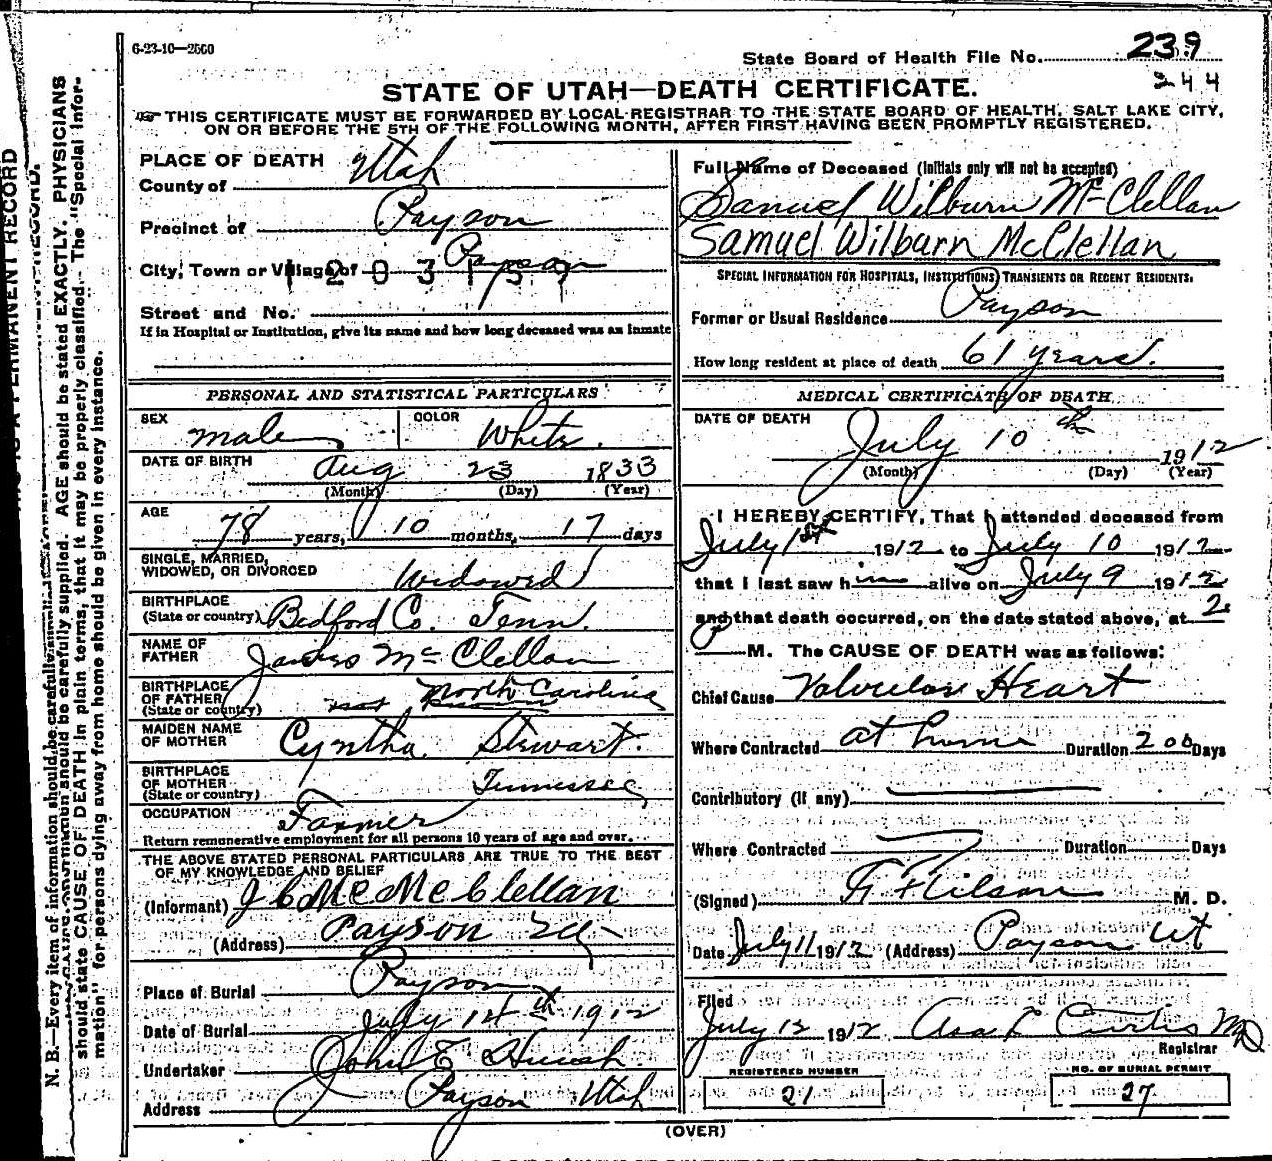 6-23-10—2500
State Board of Health File No. 239
244
STATE OF UTAH—DEATH CERTIFICATE.
THIS CERTIFICATE MUST BE FORWARDED BY LOCAL REGISTRAR TO THE STATE BOARD OF HEALTH, SALT LAKE CITY,
ON OR BEFORE THE 5TH OF THE FOLLOWING MONTH, AFTER FIRST HAVING BEEN PROMPTLY REGISTERED.
PLACE OF DEATH
County of Utah
Precinct of Payson
City, Town or Village of Payson
Street and No.
If in Hospital or Institution, give its name and how long deceased was an inmate
PERSONAL AND STATISTICAL PARTICULARS
SEX male COLOR White.
DATE OF BIRTH Aug 23 1833
(Month) (Day) (Year)
AGE 78 years, 10 months, 17 days
SINGLE, MARRIED,
WIDOWED, OR DIVORCED Widowed
BIRTHPLACE
(State or country) Bedford Co. Tenn.
NAME OF
FATHER James McClellan
BIRTHPLACE
OF FATHER
(State or country) North Carolina
MAIDEN NAME
OF MOTHER Cyntha Stewart.
BIRTHPLACE
OF MOTHER
(State or country) Tennessee
OCCUPATION Farmer
Return remunerative employment for all persons 10 years of age and over.
THE ABOVE STATED PERSONAL PARTICULARS ARE TRUE TO THE BEST
OF MY KNOWLEDGE AND BELIEF
(Informant) McClellan
(Address) Payson
Place of Burial Payson
Date of Burial July 14th 1912
Undertaker John E
Address Payson Utah
Full Name of Deceased (Initials only will not be accepted)
Samuel Wilburn McClellan
Samuel Wilburn McClellan
SPECIAL INFORMATION FOR HOSPITALS, INSTITUTIONS, TRANSIENTS OR RECENT RESIDENTS.
Former or Usual Residence Payson
How long resident at place of death 61 years.
MEDICAL CERTIFICATE OF DEATH
DATE OF DEATH
July 10th 1912
(Month) (Day) (Year)
I HEREBY CERTIFY, That I attended deceased from
July 1st 1912 to July 10 1912
that I last saw him alive on July 9 1912
and that death occurred, on the date stated above, at 2
P M. The CAUSE OF DEATH was as follows:
Chief Cause Valvular Heart
Where Contracted at home Duration 200 Days
Contributory (if any)
Where Contracted Duration Days
(Signed) M. D.
Date July 11 1912 (Address) Payson Ut
Filed
July 12 1912 Asa L Curtis MD
Registrar
REGISTERED NUMBER
21
NO. OF BURIAL PERMIT
27
(OVER)
N. B.—Every item of information should be carefully supplied. AGE should be stated EXACTLY. PHYSICIANS
should state CAUSE OF DEATH in plain terms, that it may be properly classified. The "Special Infor-
mation" for persons dying away from home should be given in every instance.